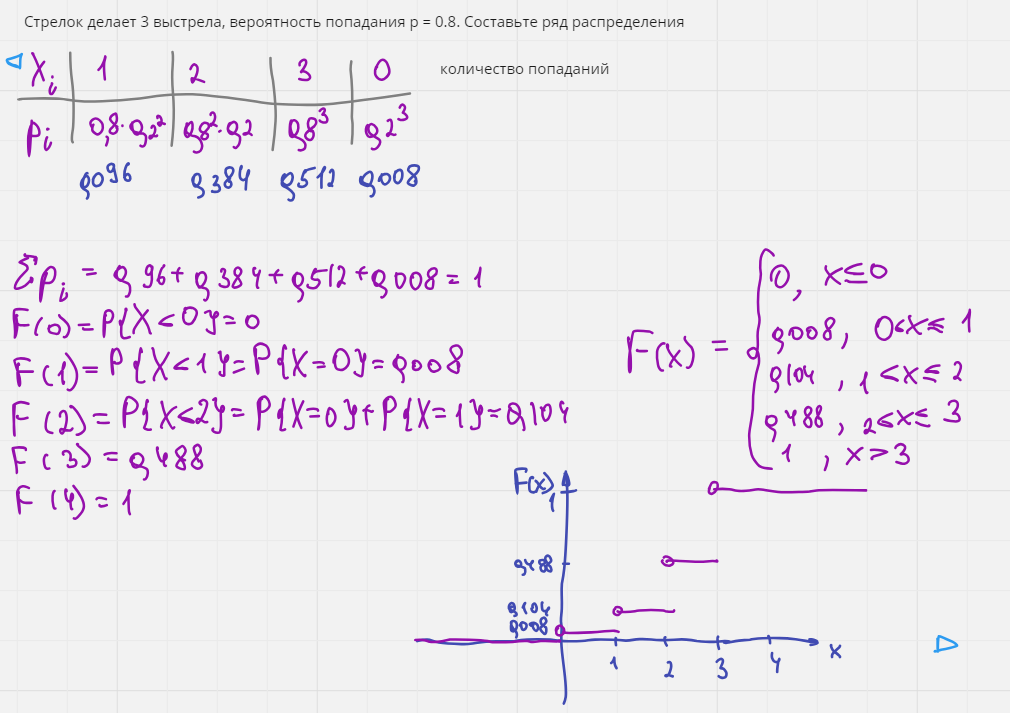 Стрелок делает 3 выстрела, вероятность попадания p = 0.8. Составьте ряд распределения
xᵢ 1 2 3 0
количество попаданий
pᵢ 0,8·0,2² 0,8²·0,2 0,8³ 0,2³
0,096 0,384 0,512 0,008
Σpᵢ = 0,96+0,384+0,512+0,008=1
F(0)=P{X<0}=0
F(1)=P{X<1}=P{X=0}=0,008
F(2)=P{X<2}=P{X=0}+P{X=1}=0,104
F(3)=0,488
F(4)=1
F(x) =
0, x≤0
0,008, 0<x≤1
0,104, 1<x≤2
0,488, 2<x≤3
1, x>3
F(x)
1
0,488
0,104
0,008
1 2 3 4 x